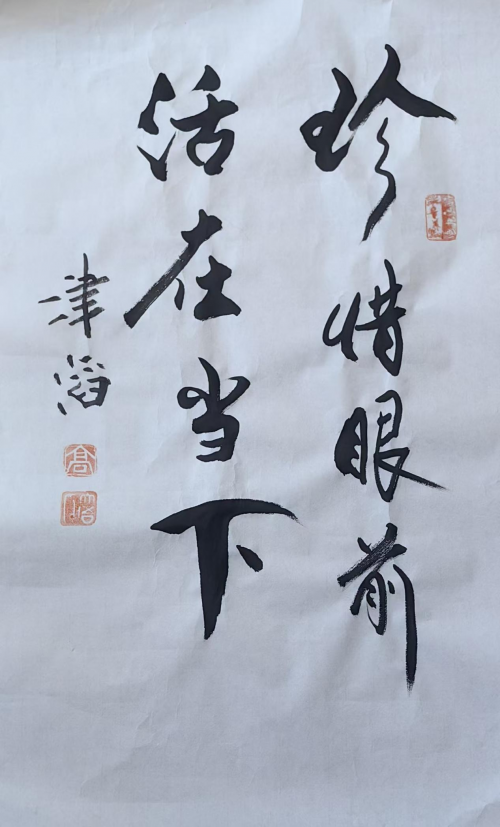 珍惜眼前
活在当下
津滔